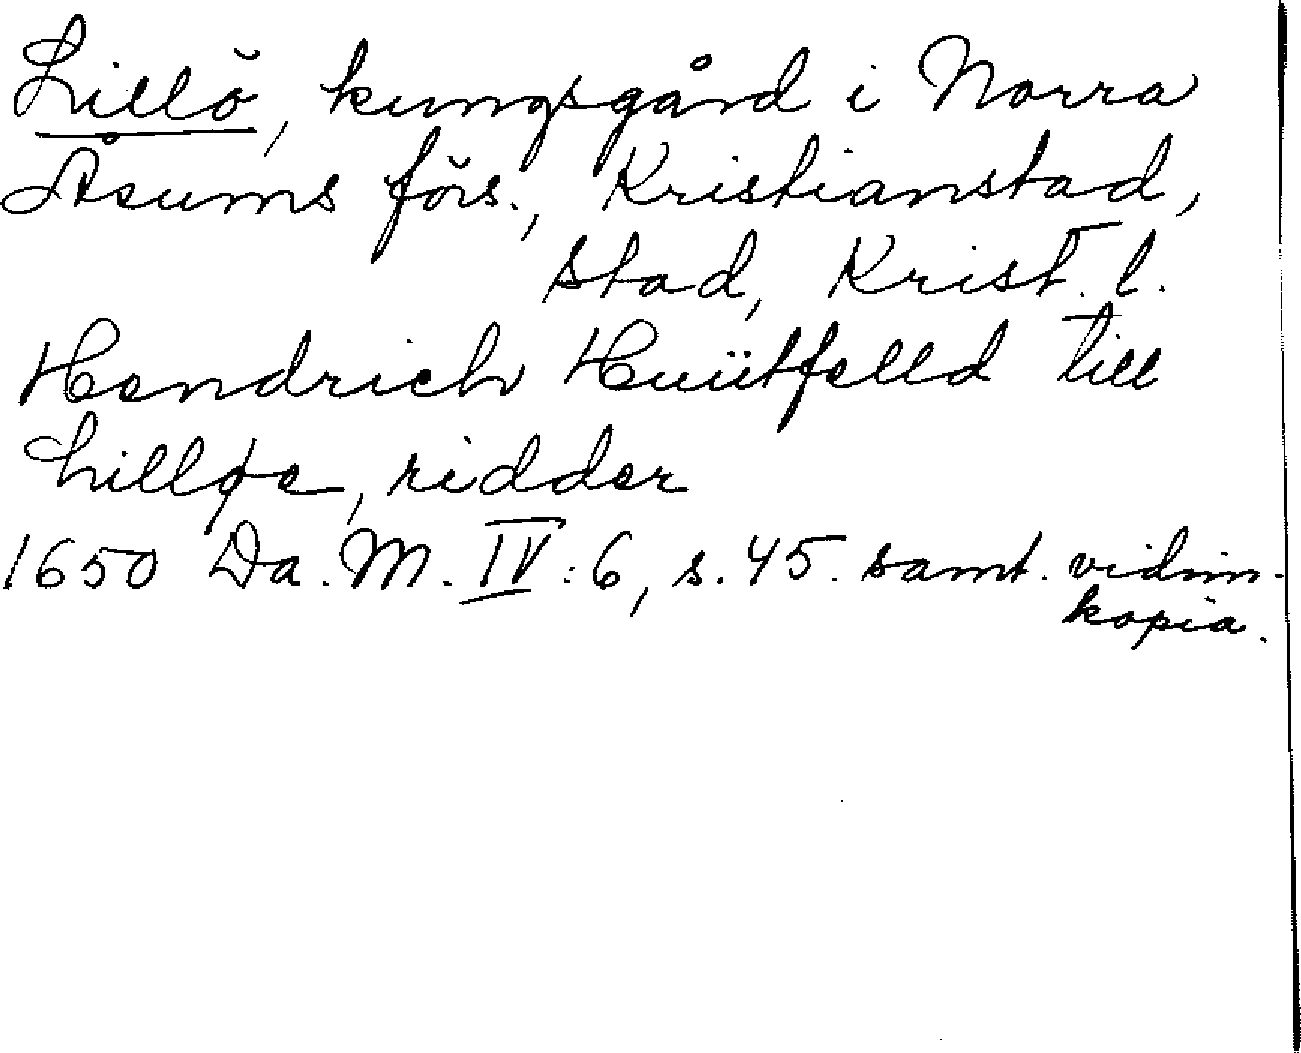 Lillö, kungsgård i Norra
Åsums förs., Kristianstad,
stad, Krist. l.
Hendrich Huütfelld till
Lilløe, ridder
1650 Da. M. IV:6, s. 45. samt. vidim.
kopia.